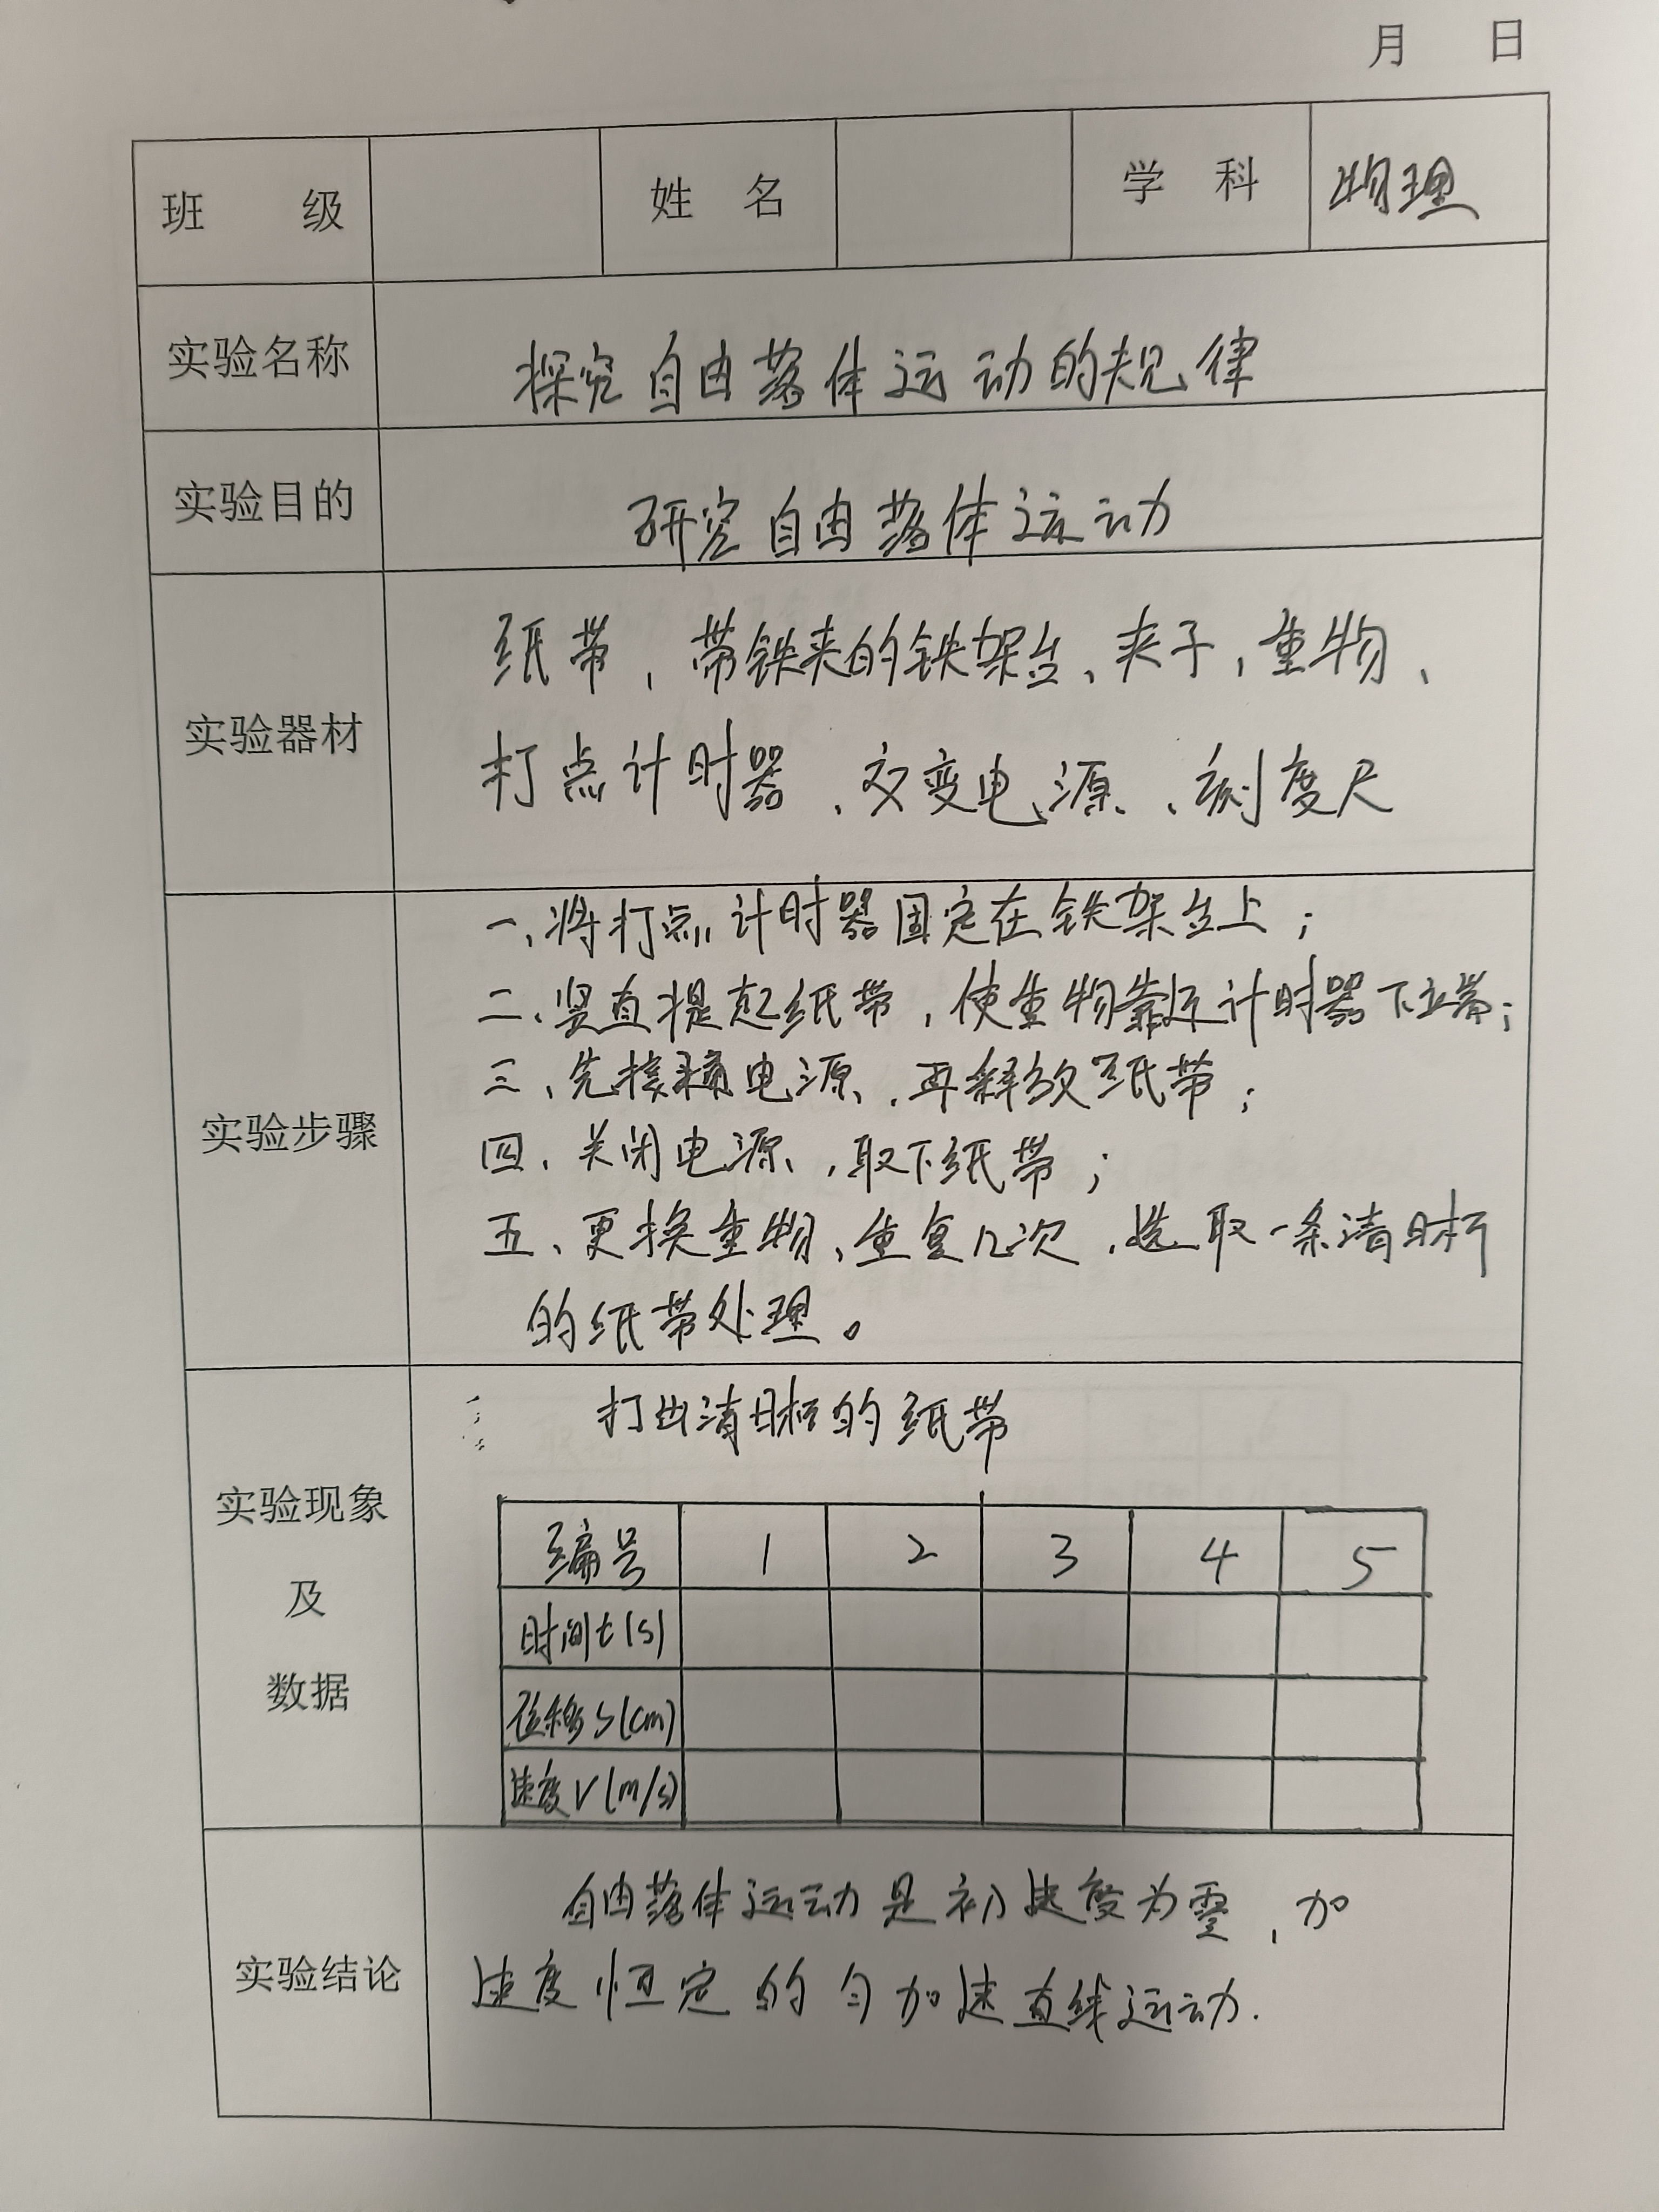 月 日
班 级 姓 名 学 科 物理
实验名称 探究自由落体运动的规律
实验目的 研究自由落体运动
纸带、带铁夹的铁架台、夹子、重物、
实验器材
打点计时器、交变电源、刻度尺
一、将打点计时器固定在铁架台上；
二、竖直提起纸带，使重物靠近计时器下端；
三、先接通电源，再释放纸带；
实验步骤
四、关闭电源，取下纸带；
五、更换重物、重复几次，选取一条清晰
的纸带处理。
打出清晰的纸带
实验现象
及
数据
编号 1 2 3 4 5
时间t(s)
位移s(cm)
速度V(m/s)
自由落体运动是初速度为零，加
实验结论
速度恒定的匀加速直线运动.